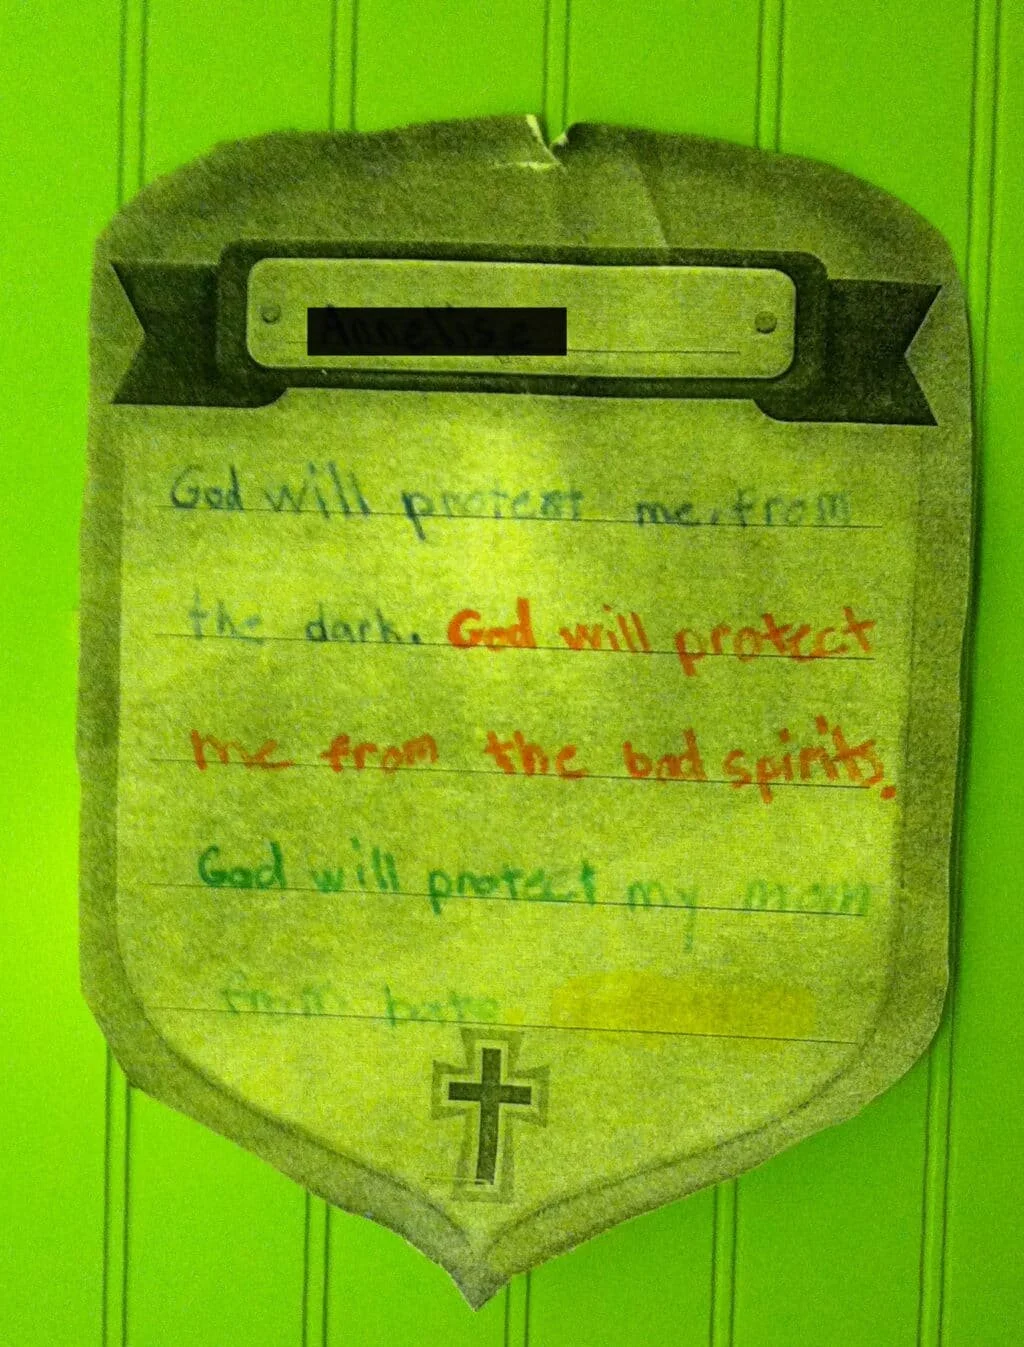 God will protect me. from
the dark. God will protect
me from the bad spirits.
God will protect my mom
from